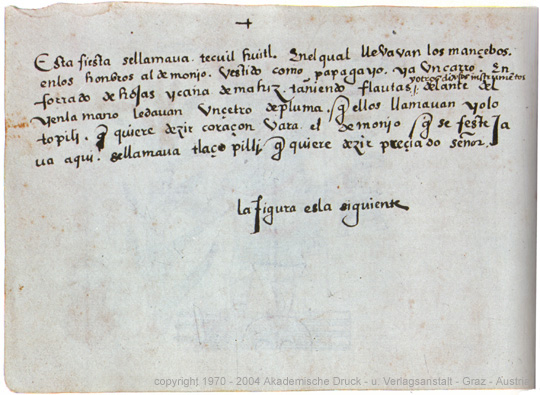 +
Esta fiesta sellamaua. tecuil huitl. Enel qual llevavan los mançebos.
enlos honbros al demonjo. vestido como papagayo. ya un carro. En
y otros diversos instrumentos
forrado de hojas y cana de mahiz tañendo flautas delante del
yenla mano ledavan unçetro de pluma. q̃ ellos llamauan yolo
topili. q̃ quiere dezir coraçon vara. el demonjo q̃ se feste Ja
ua aqui. sellamaua tlaço pilli. q̃ quiere dezir preçiado señor.
la figura esla siguiente
copyright 1970 - 2004 Akademische Druck - u. Verlagsanstalt - Graz - Austri